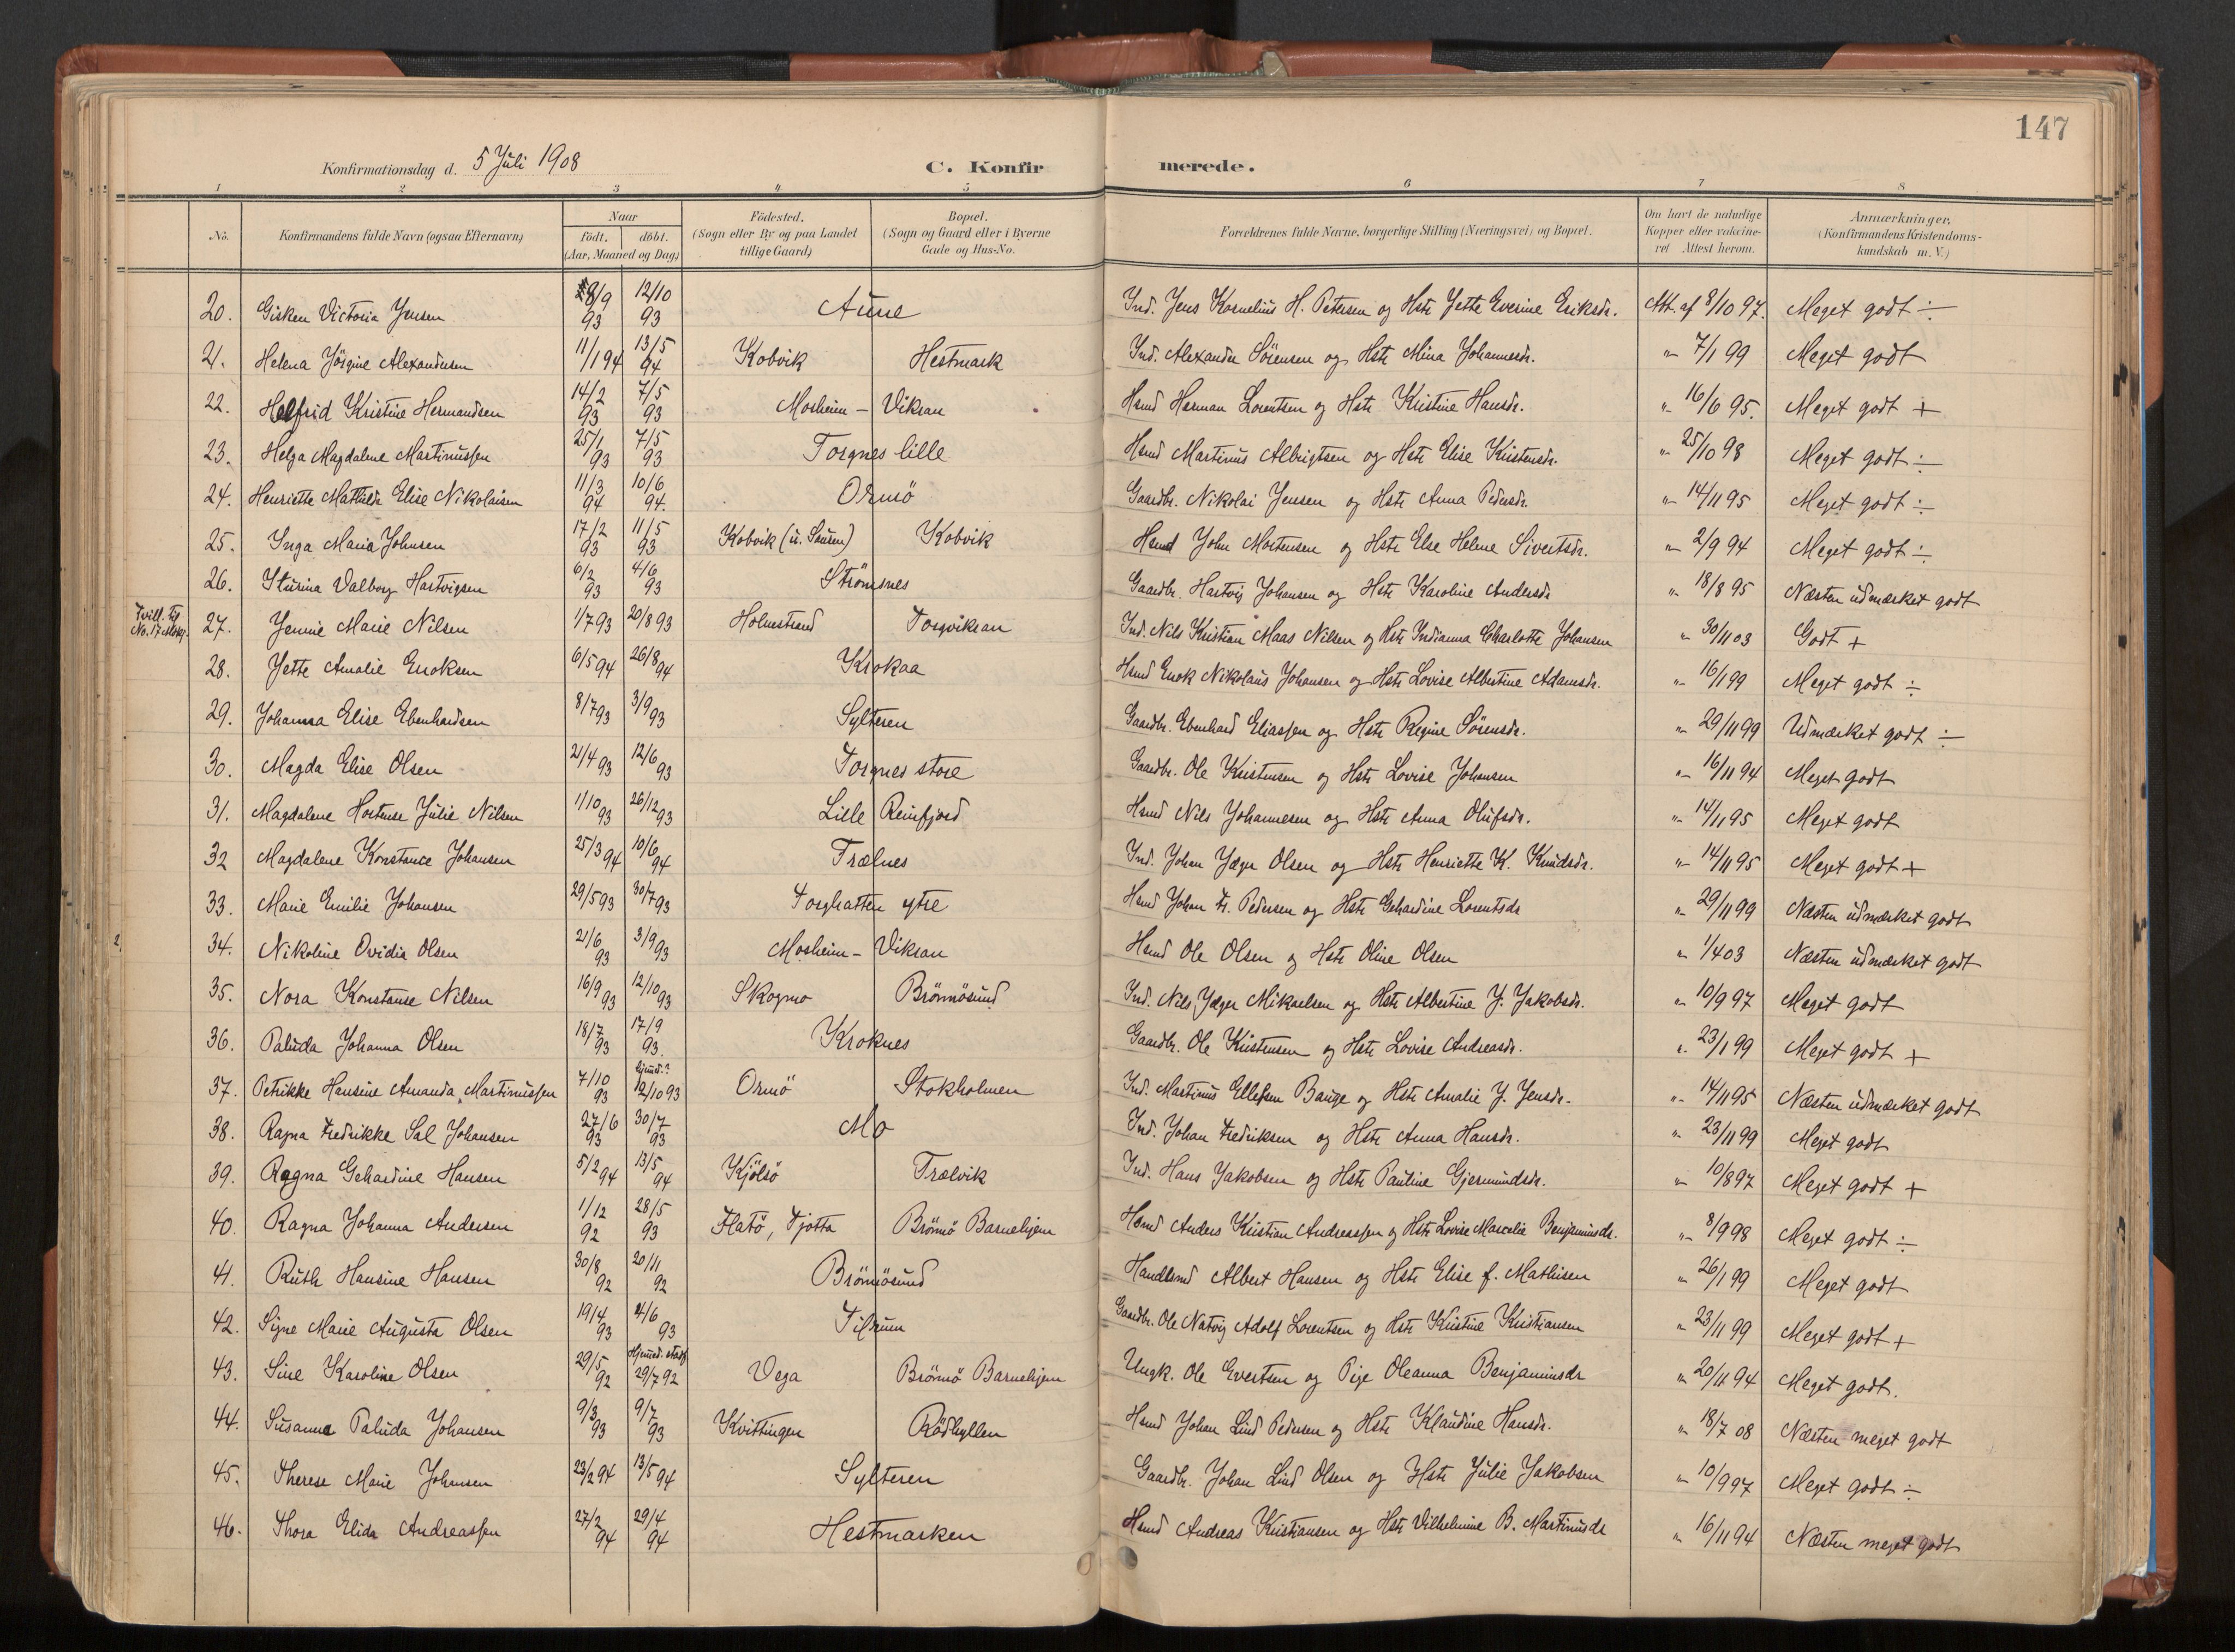 147
Konfirmationsdag d. 5 Juli 1908
C. Konfir
merede.
1 2 3 4 5 6 7 8
No.
Konfirmandens fulde Navn (ogsaa Efternavn)
Naar
født. døbt.
(Aar, Maaned og Dag)
Födested.
(Sogn eller By og paa Landet
tillige Gaard)
Bopæl.
(Sogn og Gaard eller i Byerne
Gade og Hus-No.
Forældrenes fulde Navne, borgerlige Stilling (Næringsvei) og Bopæl.
Om havt de naturlige
Kopper eller vakcine-
ret Attest herom.
Anmærkninger.
(Konfirmandens Kristendoms-
kundskab m. V.)
20. Gisken Victoria Jensen 28/9 93 12/10 93 Aune Ind. Jens Kornelius H. Petersen og Hstr Jette Everine Eriksdr. Att. af 8/10 97. Meget godt ÷
21. Helena Jörgine Alexandersen 11/1 94 13/5 94 Kobvik Hestmark Ind. Alexander Sörensen og Hstr Mina Johannesdr. " 7/1 99 Meget godt
22. Helfrid Kristine Hermandsen 14/2 93 7/5 93 Mosheim - Vikran Hsmd Herman Lorentsen og Hstr Kristine Hansdr. " 16/6 95. Meget godt +
23. Helga Magdalene Martinussen 25/1 93 7/5 93 Torgnes lille Hsmd Martinus Albrigtsen og Hstr Elise Kristensdr. " 25/10 98 Meget godt ÷
24. Henriette Mathilde Elise Nikolaisen 11/3 94 10/6 94. Ormö Gaardbr. Nikolai Jensen og Hstr Anna Pedersdr. " 14/11 95 Meget godt ÷
25. Inga Maria Johnsen 17/2 93 11/5 93 Kobvik Kobvik Hsmd John Mortensen og Hstr Else Helene Sivertsdr. " 2/9 94 Meget godt ÷
26. Valborg Hartvigsen 6/2 93 4/6 93 Strömsnes Gaardbr. Hartvig Johansen og Hstr Karoline Andersdr " 18/8 95 Næsten udmærket godt
Tvill. til
No. 17
27. Jennie Marie Nilsen 1/7 93 20/8 93 Holmstrand Torgvikran Ind. Nils Kristian Maas Nilsen og Hstr Indianna Charlotte Johansen " 30/11 03 Godt +
28. Jette Amalie Enoksen 6/5 94 26/8 94 Krokaa Hsmd Enok Nikolaus Johansen og Hstr Lovise Albertine Adamsdr. " 16/1 99 Meget godt ÷
29. Johanna Elise Ebenhardsen 8/7 93 3/9 93 Sylteren Gaardbr. Ebenhard Eliassen og Hstr Regine Sörensdr. " 29/11 99 Udmærket godt ÷
30. Magda Elise Olsen 21/4 93 12/6 93 Torgnes store Gaardbr. Ole Kristensen og Hstr Lovise Johansen " 16/11 94 Meget godt
31. Magdalene Hortense Julie Nilsen 1/10 93 26/12 93 Lille Reinfjord Hsmd Nils Johannesen og Hstr Anna Olufsdr. " 14/11 95 Meget godt
32 Magdalene Konstance Johansen 25/3 94 10/6 94 Trælnes Ind. Johan Jæger Olsen og Hstr Henriette K. Knudsdr. " 14/11 95 Meget godt +
33. Marie Emilie Johansen 29/5 93 30/7 93 Torghatten ytre Hsmd Johan Fr. Pedersen og Hstr Gehardine Lorentsdr " 29/11 99 Næsten udmærket godt
2.
34. Nikoline Ovidia Olsen 21/6 93 3/9 93 Mosheim - Vikran Hsmd Ole Olsen og Hstr Oline Olsen " 1/4 03 Næsten udmærket godt
35. Nora Konstanse Nilsen 16/9 93 12/10 93 Skogmo Brönnösund Ind. Nils Jæger Mikaelsen og Hstr Albertine J. Jakobsdr. " 10/9 97 Meget godt
36. Paluda Johanna Olsen 18/7 93 17/9 93. Kroknes Gaardbr. Ole Kristensen og Hstr Lovise Andreasdr. " 23/1 99 Meget godt +
37. Petrikke Hansine Amanda Martinussen 7/10 93 hjemmed.? 12/10 93 Ormö Stokholmen Ind. Martinus Ellefsen Bauge og Hstr Amalie J. Jensdr. " 14/11 95 Næsten udmærket godt
38. Ragna Fredrikke Sal Johansen 27/6 93 30/7 93 Mo Ind. Johan Fredriksen og Hstr Anna Hansdr. " 23/11 99 Meget godt
39. Ragna Gehardine Hansen 5/2 94 13/5 94 Kjölsö Trælvik Ind. Hans Jakobsen og Hstr Pauline Gjermundsdr. " 10/8 97 Meget godt +
40. Ragna Johanna Andersen 1/12 92 28/5 93 Flatö, Tjotta Brönnö Barnehjem Hsmd Anders Kristian Andreassen og Hstr Lovise Marcelie Benjaminsdr. " 8/9 98 Meget godt ÷
41. Ruth Hansine Hansen 30/8 92 20/11 92 Brönnösund Handlsmd Albert Hansen og Hstr Elise f. Mathisen " 26/1 99 Meget godt
42. Signe Marie Augusta Olsen 19/4 93 4/6 93 Tilrum Gaardbr. Ole Natvig Adolf Lorentsen og Hstr Kristine Kristiansen " 23/11 99 Meget godt +
43. Sine Karoline Olsen 29/5 92 Hjemmed. stadf. 29/7 92 Vega Brönnö Barnehjem Ungk. Ole Evertsen og Pige Oleanna Benjaminsdr " 20/11 94 Meget godt.
44. Susanna Paluda Johansen 9/3 93 9/7 93 Kvittingen Rödhyllen Hsmd Johan Lind Pedersen og Hstr Klaudine Hansdr. " 18/7 08 Næsten meget godt
45. Therese Marie Johansen 23/2 94 13/5 94 Sylteren Gaardbr. Johan Lind Olsen og Hstr Julie Jakobsen " 10/9 97 Meget godt ÷
46. Thora Elida Andreassen 27/2 94 29/4 94 Hestmarken Hsmd Andreas Kristiansen og Hstr Vilhelmine B. Martinusdr " 16/11 94 Næsten meget godt